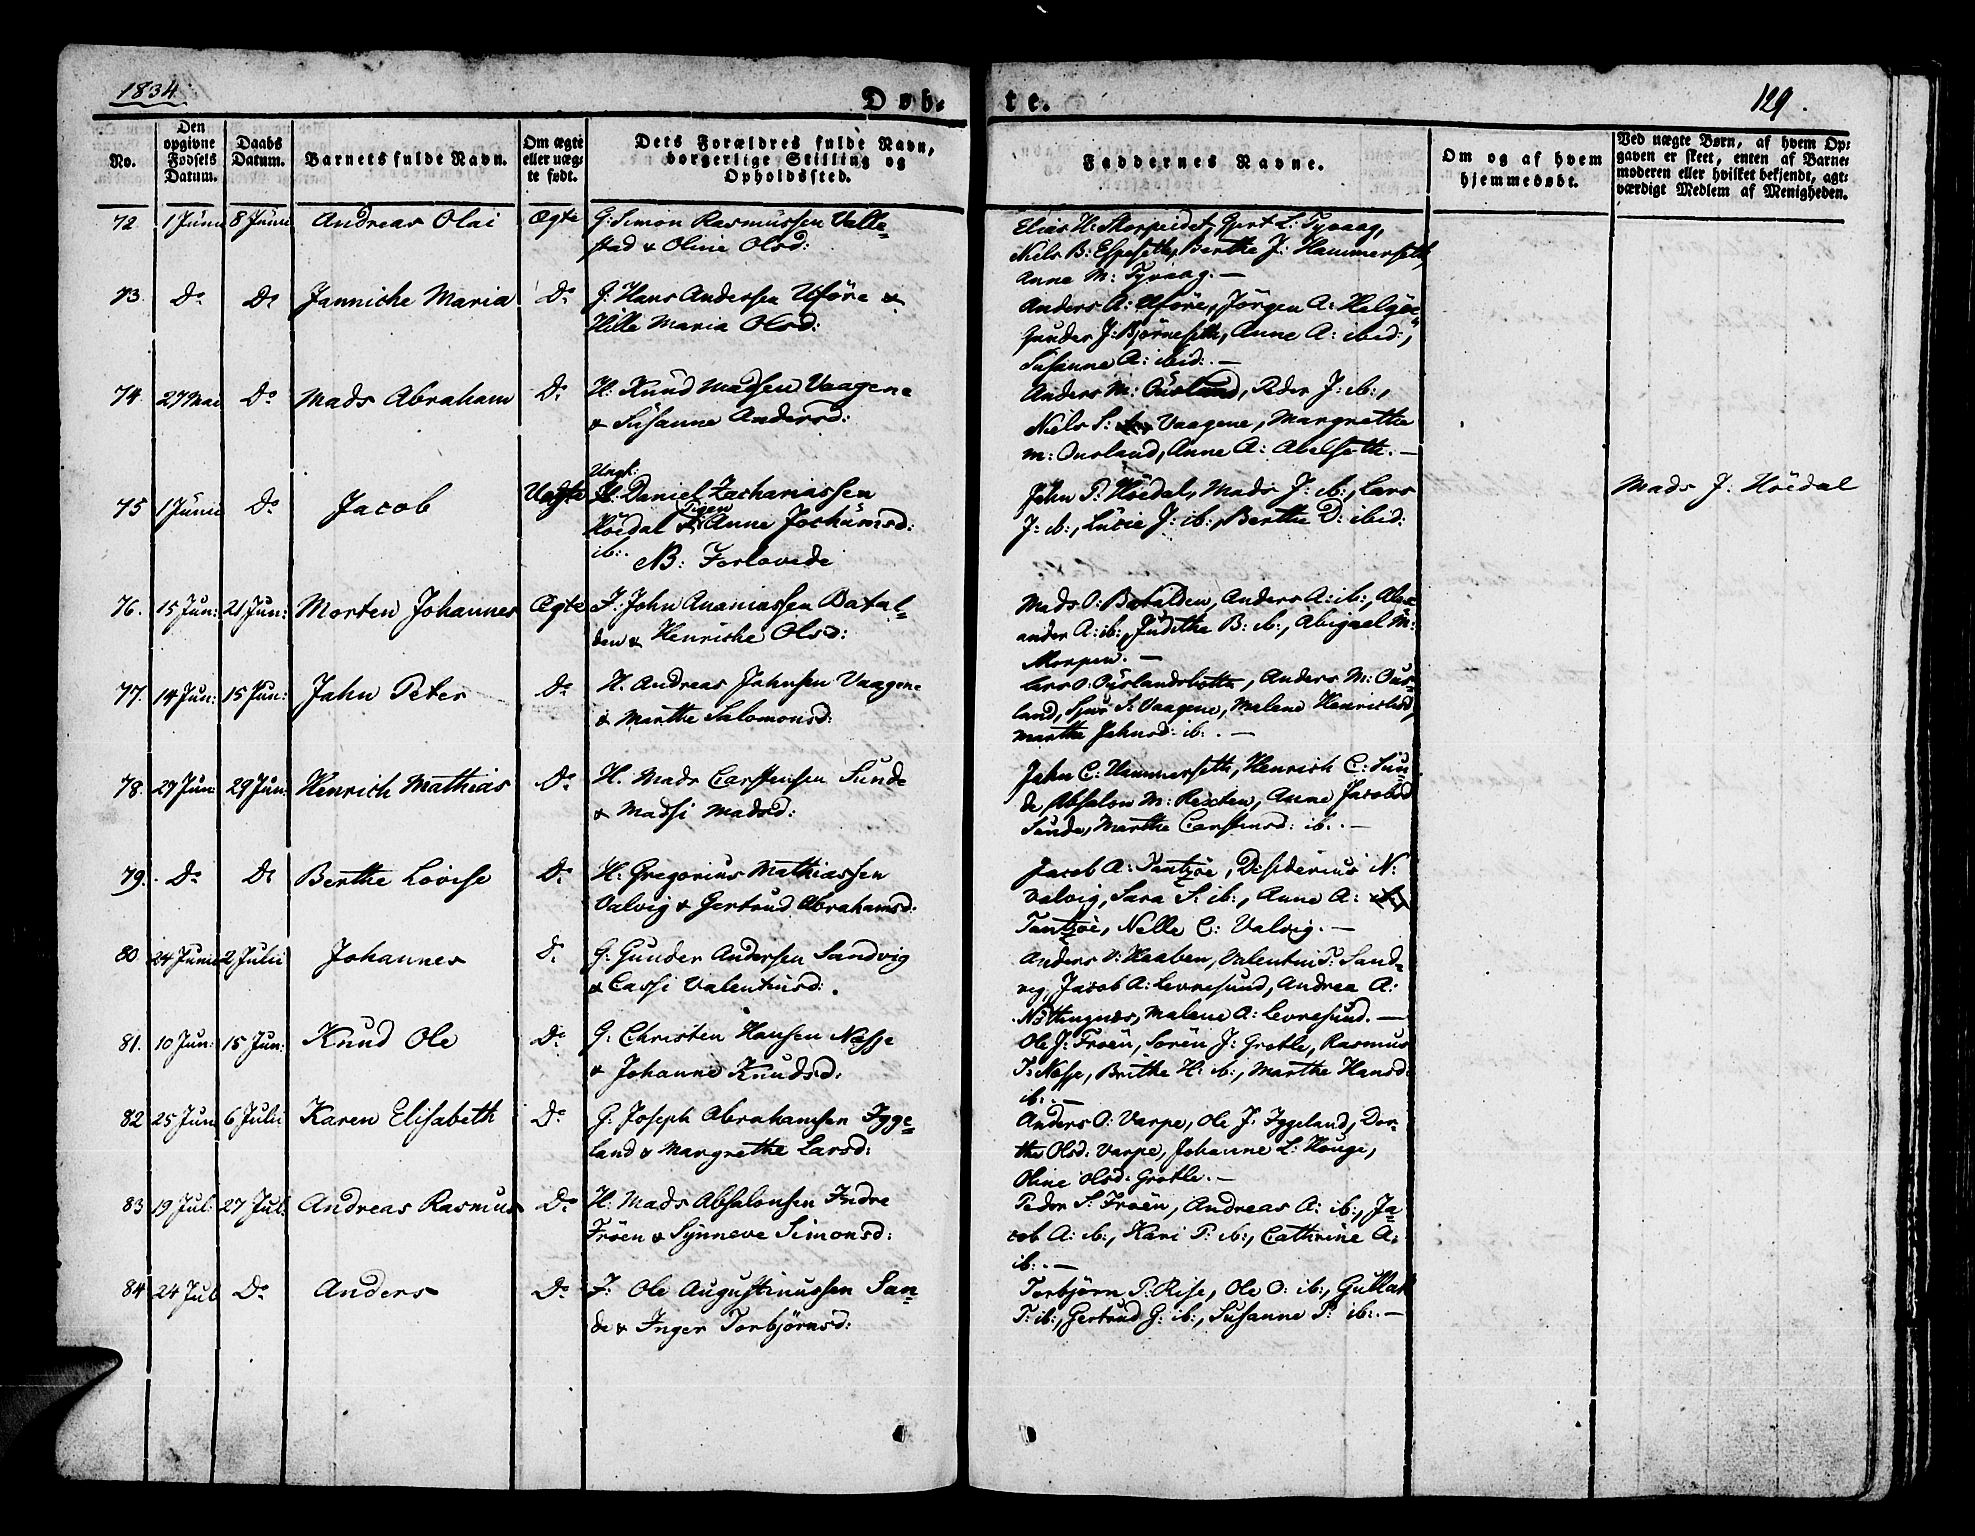 1834.
Døb-
te.
129.
No.
Den opgivne Fødsels Datum.
Daabs Datum.
Barnets fulde Navn.
Om ægte eller uægte født.
Dets Forældres fulde Navn, borgerlige Stilling og Opholdssted.
Faddernes Navne.
Om og af hvem hjemmedøbt.
Ved uægte Børn, af hvem Opgaven er skeet, enten af Barnemoderen eller hvilket bekjendt, agtværdigt Medlem af Menigheden.
72 1 Junii 8 Junii Andreas Olai Ægte G: Simon Rasmussen Valle-
stad & Oline Olsd:
Elias H: Skorpeidet, Gjert L: Tyvaag,
Niels B: Espeseth, Berthe J: Hammerseth,
Anne M: Tyvaag. —
73. Do Do Janniche Maria Do G: Hans Andersen Uføre &
Hille Maria Olsd:
Anders A: Uføre, Jörgen A: Helgöe,
Gunder J: Bjørneseth, Anne A: ibid:,
Susanne A: ibid: —
74. 27 Mai Do Mads Abraham Do H: Knud Madsen Vaagene
& Susanne Andersd:
Anders M: Ousland, Peder J: ib:,
Niels S: Vaagene, Margrethe
M: Ousland, Anne A: Abelseth. —
75 1 Junii Do Jacob Uægte Ungk: Daniel Zachariassen
Höedal & Pigen Anne Jochumsd:
ib:. NB: Forlovede
John P: Höedal, Mads J: ib:, Lars
J: ib:, Lucie J: ib:, Berthe D: ibid:
Mads J: Höedal
76. 15 Jun: 21 Jun: Morten Johannes Ægte I: John Ananiassen Batal-
den & Henriche Olsd:
Mads O: Batalden, Anders A: ib:, Alex-
ander A: ib:, Judithe B: ib:, Abigael M:
Skorpen. —
77. 14 Jun: 15 Jun: Jahn Peter Do H. Andreas Jahnsen Vaagene
& Marthe Salomonsd:
Lars O: Ouslandsbotten, Anders M: Ous-
land, Sjur S: Vaagene, Malene Henrichsd,
Marthe Jahnsd: ib:. —
78. 27 Jun: 29 Jun: Henrich Mathias Do H. Mads Carstensen Sunde
& Madsi Madsd:
Jahn C: Hammerseth, Henrich C: Sun-
de, Absalon M: Rexten, Anne Jacobsd
Sunde, Marthe Carstensd: ib:. —
79. Do Do Berthe Lovise Do H: Gregorius Mathiassen
Valvig & Gertrud Abrahamsd:
Jacob A: Tantzöe, Desiderius N:
Valvig, Sara S: ib:, Anne A:
Tantzöe, Nelle C: Valvig. —
80 24 Junii 2 Julii Johannes Do G: Gunder Andersen Sandvig
& Cassi Valentinsd:.
Anders V: Heaben, Valentin P: Sand-
vig, Jacob A: Levresund, Andrea A:
Nöttingnes, Malene A: Levresund. —
81. 10 Jun: 15 Jun: Knud Ole Do G: Christen Hansen Nesje
& Johanne Knudsd:
Ole J: Fröen, Sören J: Grotle, Rasmus
J: Nesje, Brithe H: ib:, Marthe Hansd:
ib:. —
82 25 Jun 6 Julii Karen Elisabeth Do G: Joseph Abrahamsen Igge-
land & Margrethe Larsd:
Anders O: Varpe, Ole J: Iggeland, Dor-
the Olsd: Varpe, Johanne L: Houge,
Oline Olsd: Grotle. —
83 19 Jul: 27 Jul: Andreas Rasmus Do H: Mads Absalonsen Indre
Fröen & Synneve Simonsd:
Peder S: Fröen, Andreas A: ib:, Ja-
cob A: ib:, Kari P: ib:, Cathrine A:
ib:. —
84 24 Jul Do Anders Do I: Ole Augustinussen San-
de & Inger Torbjörnsd:
Torbjörn P: Rise, Ole O: ib:, Gullak
T: ib:, Gertrud G: ib:, Susanne P: ib:. —